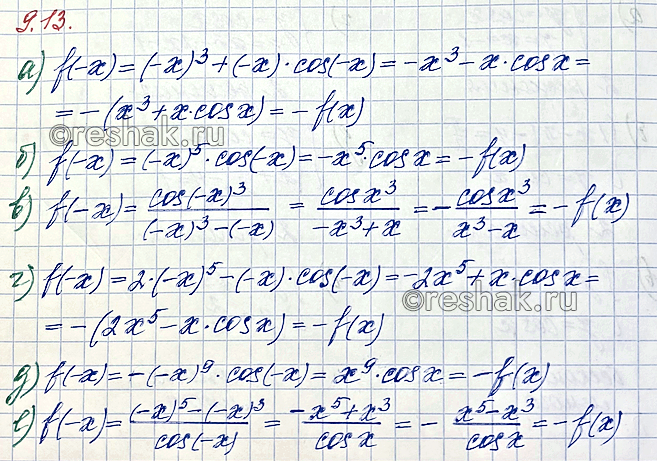 9.13.
а) f(-x) = (-x)³ + (-x) · cos(-x) = -x³ - x · cos x =
= -(x³ + x · cos x) = -f(x)
©reshak.ru
б) f(-x) = (-x)⁵ · cos(-x) = -x⁵ · cos x = -f(x)
в) f(-x) = cos(-x)³ / ((-x)³ - (-x)) = cos x³ / (-x³ + x) = - cos x³ / (x³ - x) = -f(x)
г) f(-x) = 2 · (-x)⁵ - (-x) · cos(-x) = -2x⁵ + x · cos x =
©reshak.ru
= -(2x⁵ - x · cos x) = -f(x)
д) f(-x) = -(-x)⁹ · cos(-x) = x⁹ · cos x = -f(x)
е) f(-x) = ((-x)⁵ - (-x)³) / cos(-x) = (-x⁵ + x³) / cos x = - (x⁵ - x³) / cos x = -f(x)